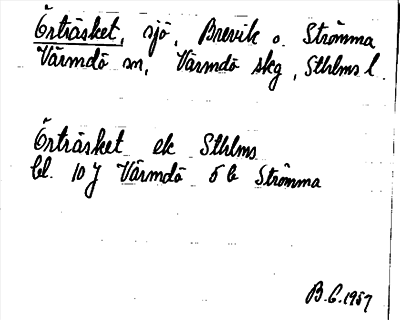 Örträsket, sjö, Brevik o. Strömma
Värmdö sn, Värmdö skg, Sthlms l.
Örträsket ek Sthlms
bl. 10 J Värmdö 5 b Strömma
B.G. 1957